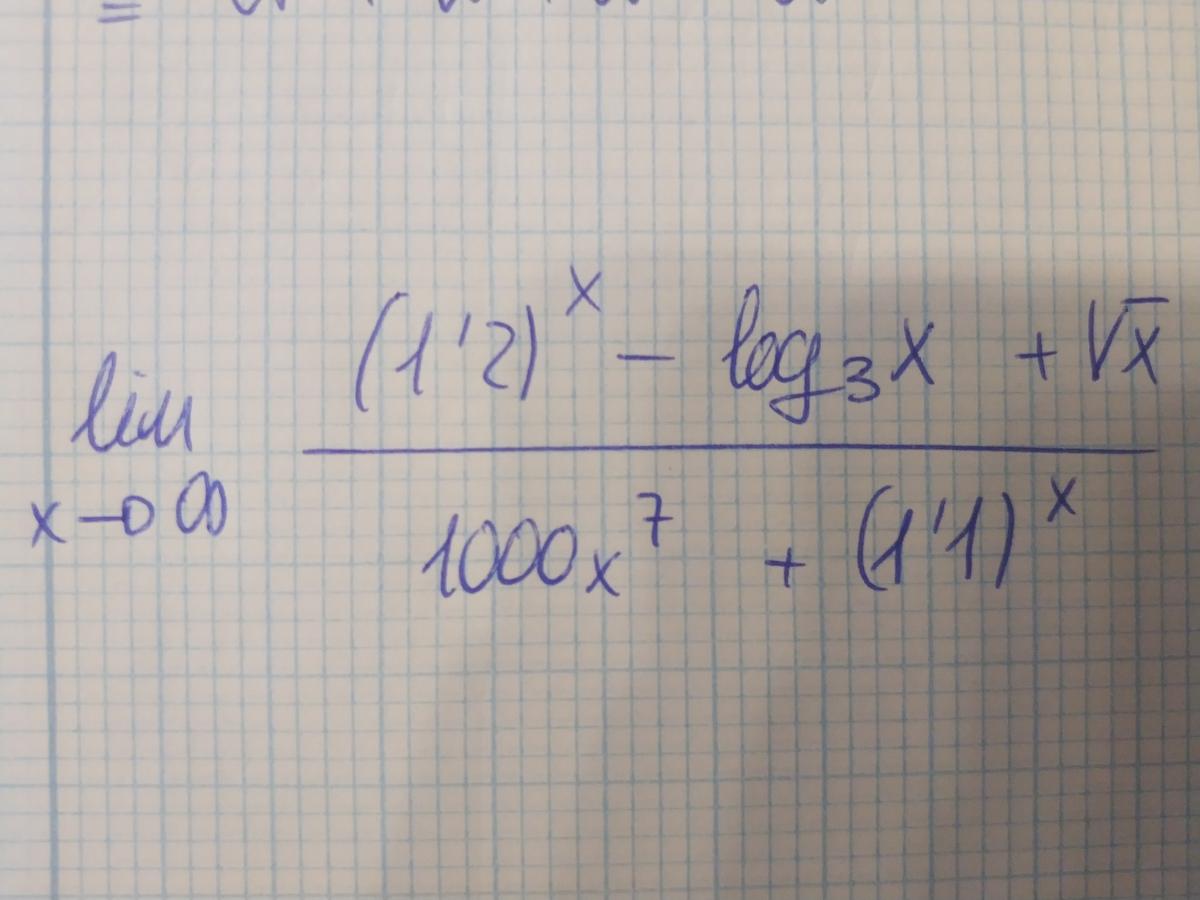 lim x→∞ ((1'2)^x - log₃x + √x) / (1000x⁷ + (1'1)^x)